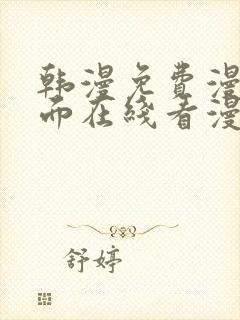 韩漫免费漫
而在线看漫
舒婷